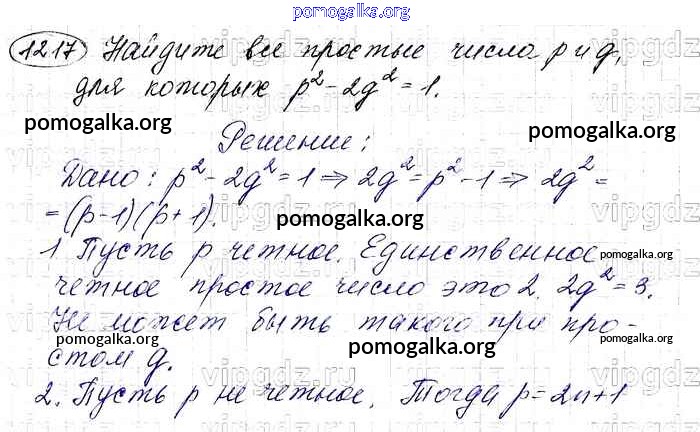 pomogalka.org
1217 Найдите все простые числа p и q,
для которых p² - 2q² = 1.
pomogalka.org pomogalka.org
Решение:
Дано: p² - 2q² = 1 ⇒ 2q² = p² - 1 ⇒ 2q² =
= (p-1)(p+1).
pomogalka.org
1. Пусть p четное. Единственное
pomogalka.org
четное простое число это 2. 2q² = 3.
Не может быть такого при про-
pomogalka.org pomogalka.org
стом q.
2. Пусть p не четное. Тогда p = 2n+1
pomogalka.org